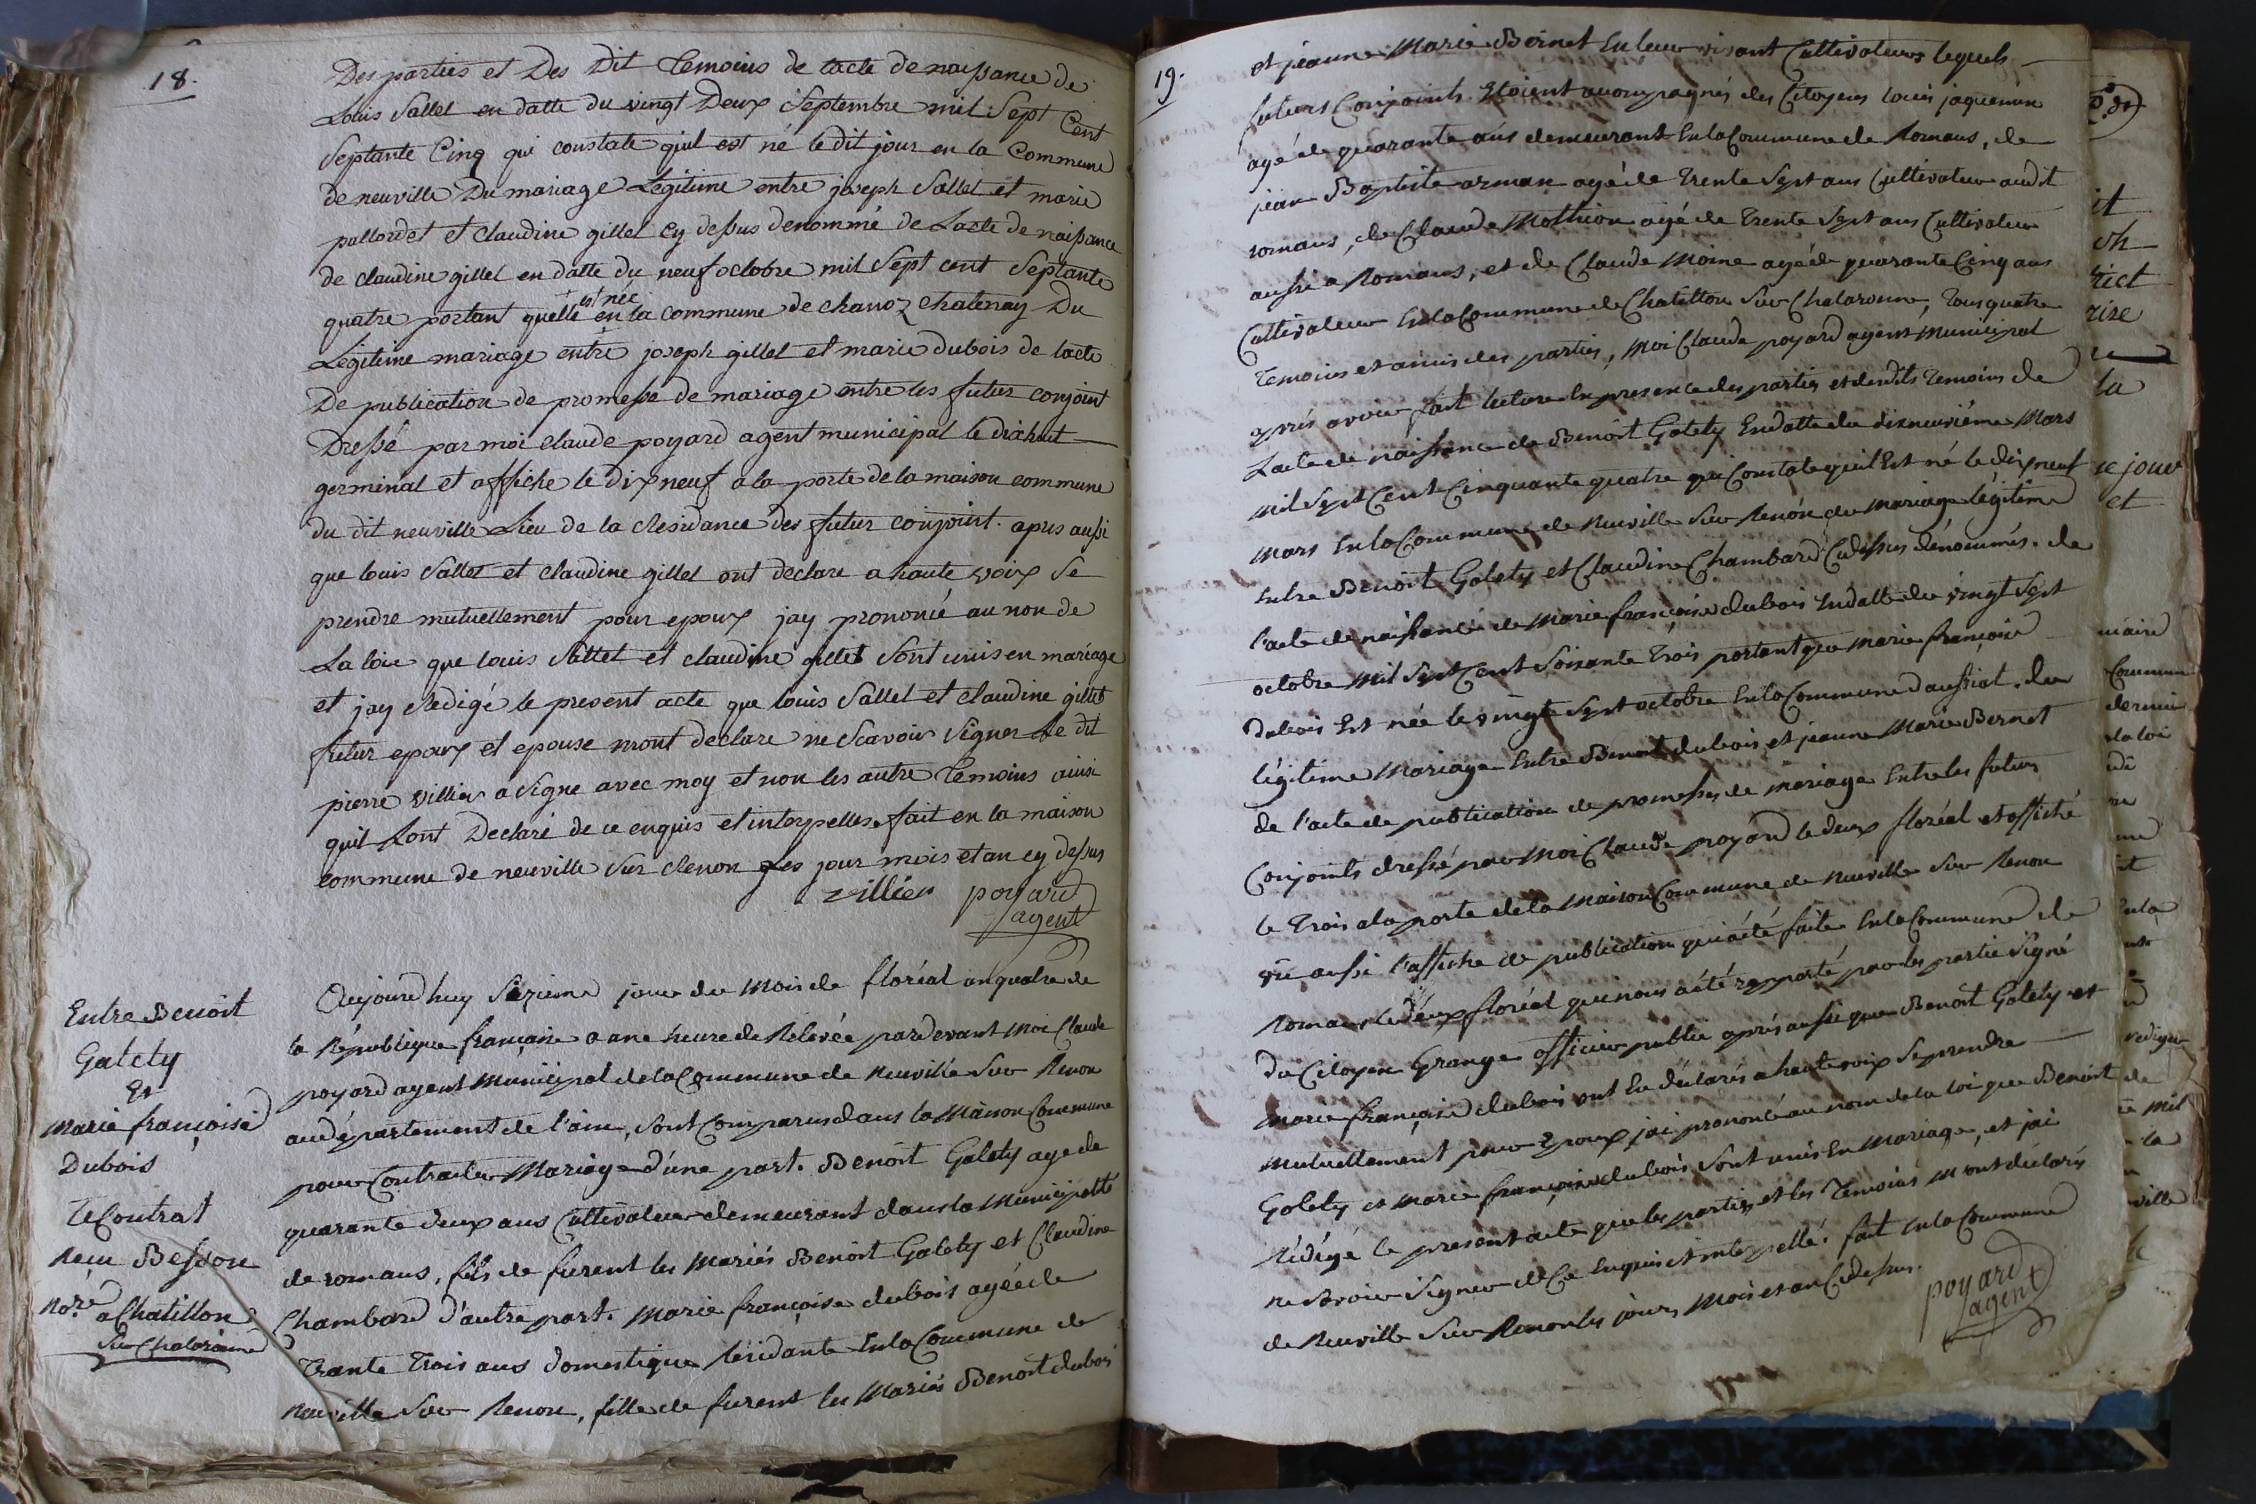 18.
Des parties et Des Dit temoins de lacte de naissance de
Louis Sallet en datte du vingt Deux Septembre mil Sept Cent
Septante Cinq qui constate quil est né le dit jour en la Commune
de neuville Du mariage Legitime entre joseph Sallet et marie
pallordet et Claudine gillet cy dessus denommé de Lacte de naissance
de claudine gillet en datte du neuf octobre mil Sept cent Septante
quatre portant quelle est née en la commune de chanoz chatenay Du
Légitime mariage entre joseph gillet et marie dubois de lacte
De publication de promesse de mariage entre les futur conjoint
Dressé par moi claude poyard agent municipal le dixhuit
germinal et affiche le dix neuf a la porte de la maison commune
du dit neuville Lieu de la Residance des futur conjoint. apres aussi
que louis Sallet et claudine gillet ont declare a haute voix Se
prendre mutuellement pour epoux jay prononcé au non de
La loix que louis Sallet et claudine gillet Sont unis en mariage
et jay Redigé le present acte que louis Sallet et claudine gillet
futur epoux et epouse mont declare ne Scavoir Signer Le dit
pierre villier a Signe avec moy et non les autre temoins ainsi
quil Lont Declaré de ce enquis et interpelles. fait en la maison
commune de neuville Sur Renon Les jour mois et an cy dessus
villier poyard
agent
Entre Benoit
Galety
Et
Marie françoise
Dubois
Le Contrat
Reçu Besson
Nore. a Chatillon
Sur Chalaronne
Aujourd huy Sizieme jour du Mois de floréal an quatre de
la République française a une heure de Relevée pardevant Moi Claude
poyard agent Municipal de la Commune de Neuville Sur Renon
au département de l'ain, Sont Comparus dans la Maison Commune
pour Contracter Mariage d'une part. Benoit Galety age de
quarante deux ans Cultivateur demeurant dans la Municipalité
de romans, fils de furent les Mariés Benoit Galety et Claudine
Chambard d'autre part. Marie françoise dubois agée de
Trante Trois ans domestique Résidante En la Commune de
Neuville Sur Renon, fille de furent les Mariés Benoit dubois
19.
et jeanne Marie Bernet En leur vivant Cultivateurs lequels
futurs Conjoints Etoient accompagnés des Citoyens louis jaquemin
agé de quarante ans demeurant En la Commune de Romans, de
jean Baptiste arman agé de Trente Sept ans Cultivateur audit
romans, de Claude Mothion agé de Trente Sept ans Cultivateur
aussi a Romans, et de Claude Moine agé de quarante Cinq ans
Cultivateur En la Commune de Chatillon Sur Chalaronne, Tous quatre
Temoins et amis des parties, Moi Claude poyard agent Municipal
après avoir fait lecture En presence des parties et desdits Temoins de
Lacte de naissance de Benoit Galety En datte du dixneuvième Mars
Mil Sept Cent Cinquante quatre qui Constate qu'il Est né le dixneuf
Mars En la Commune de Neuville Sur Renon du Mariage légitime
Entre Benoit Galety et Claudine Chambard Cidessus dénommés. de
l'acte de naissance de Marie françoise dubois En datte du vingt Sept
octobre Mil Sept Cent Soixante Trois portant que Marie françoise
Dubois Est née le vingt Sept octobre En la Commune daussiat. du
légitime Mariage Entre Benoit dubois et jeanne Marie Bernet
de l'acte de publication de promesses de Mariage Entre les futurs
Conjoints dressé par Moi Claude poyard le deux floréal et affiché
le Trois a la porte de la Maison Commune de Neuville Sur Renon
vu aussi l'affiche de publication qui a été faite En la Commune de
Romans le deux floréal qui nous a été rapporté par les partie Signé
Du Citoyen Grange officier public après aussi que Benoit Galety et
Marie françoise dubois ont Eu déclarés a haute voix Se prendre
Mutuellement pour Epoux jai prononcé au nom de la loi que Benoit
Galety et Marie françoise dubois Sont unis En Mariage, et jai
Rédigé le present acte que les parties et les Temoins M ont déclarés
ne Savoir Signer de Ce Enquis et interpellé. fait En la Commune
de Neuville Sur Renon les jours, Mois et an Cidessus.
poyard
agent
it
rict
rise
la
ce jour
et
maire
Commun
la loi
redigé
de
mil
la
ville